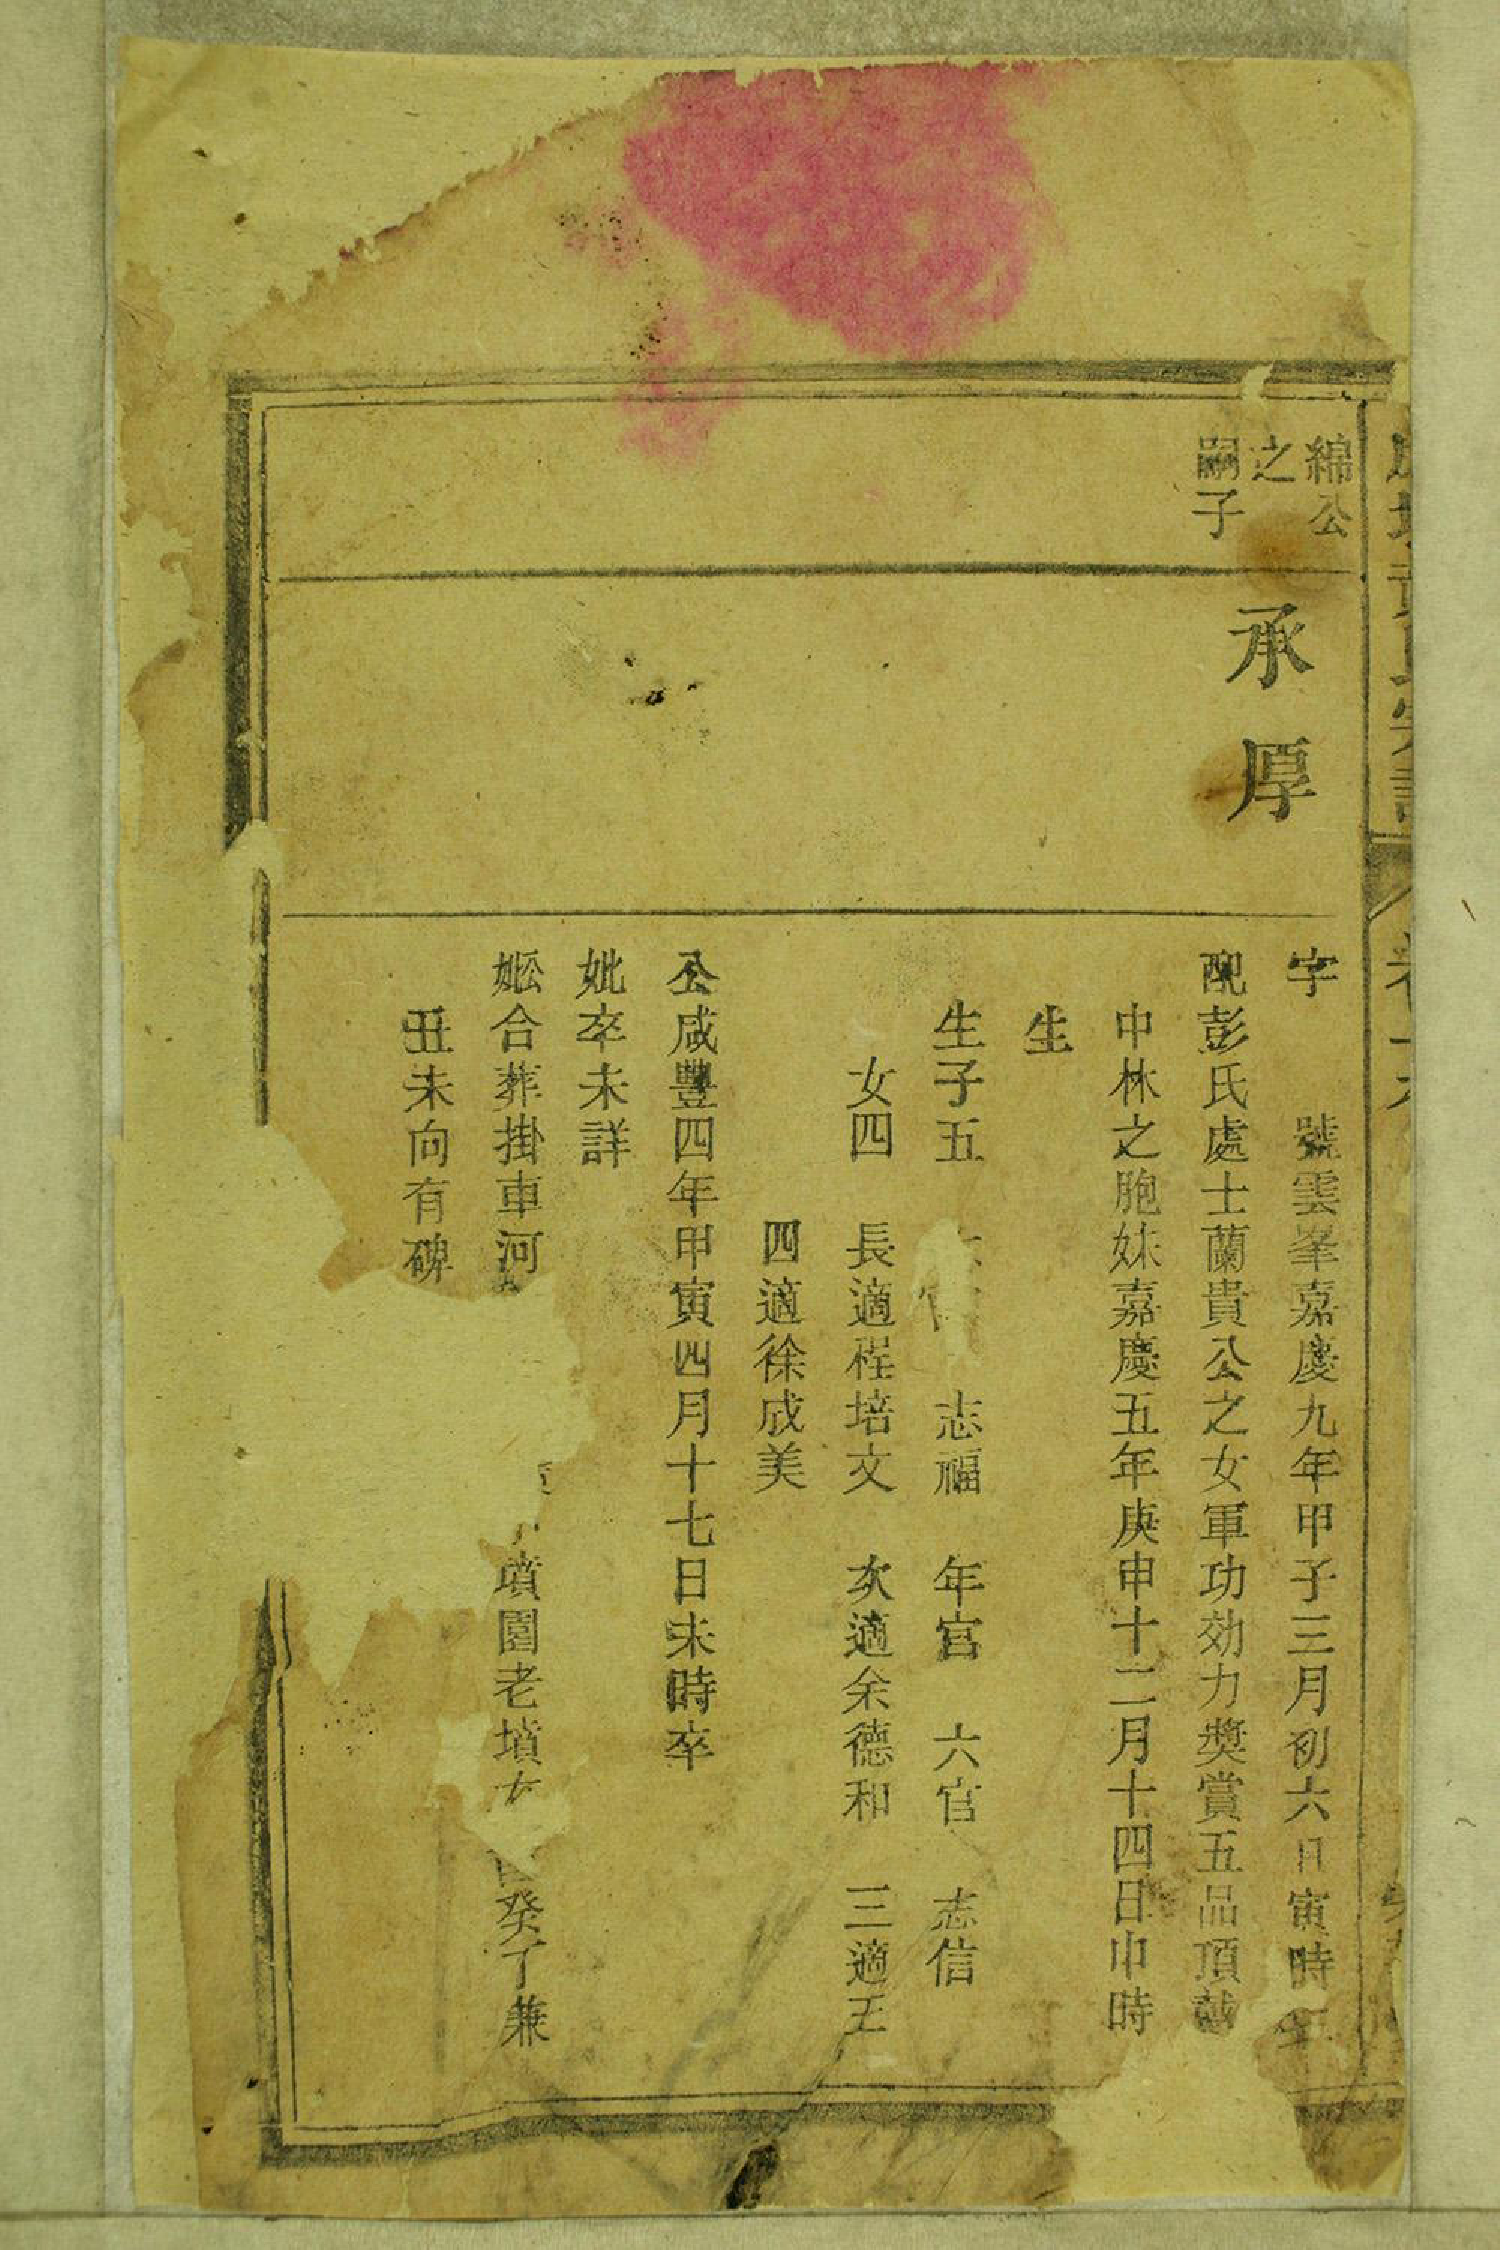 綿公
之
嗣子
承厚
字　號雲峯嘉慶九年甲子三月初六日寅時生
配彭氏處士蘭貴公之女軍功効力獎賞五品頂戴
中林之胞妹嘉慶五年庚申十二月十四日申時
生
生子五　志福　年宮　六官　志信
女四　長適程培文　次適余德和　三適王
四適徐成美
公咸豐四年甲寅四月十七日未時卒
妣卒未詳
妣公合葬掛車河　墳園老墳　癸丁兼
丑未向有碑